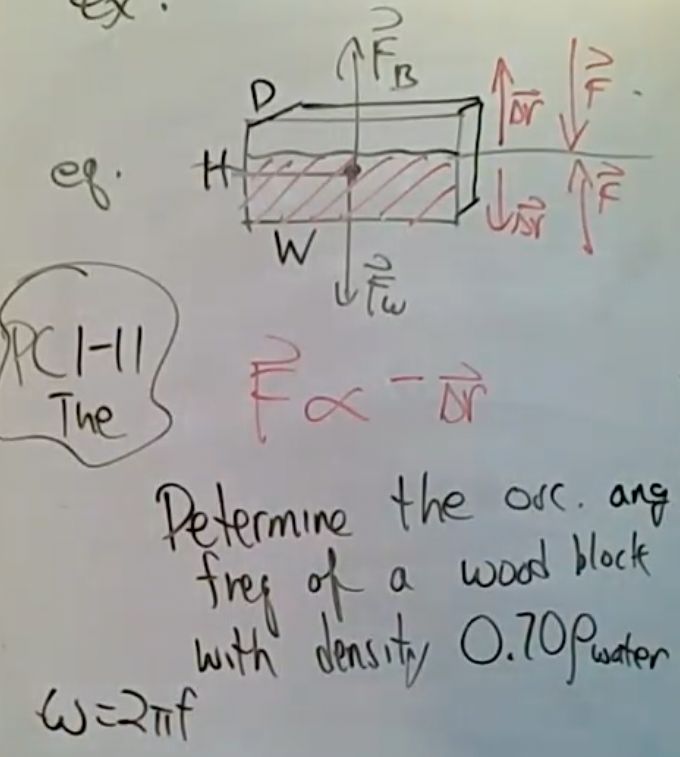 ex.
F⃗B
D
Δr⃗
F⃗
eq.
H
Δr⃗
F⃗
W
F⃗w
PC1-11
The
F⃗ ∝ -Δr⃗
Determine the osc. ang
freq of a wood block
with density 0.70ρwater
ω=2πf